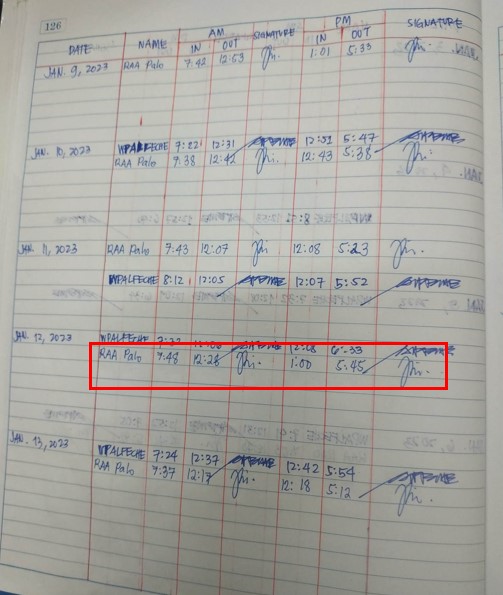 126
AM PM
DATE NAME IN OUT SIGNATURE IN OUT SIGNATURE
JAN. 9, 2023 RAA Palo 7:42 12:53 1:01 5:33
JAN. 10, 2023 WPALFECHE 7:22 12:31 12:32 5:47
RAA Palo 7:38 12:42 12:43 5:38
JAN. 11, 2023 RAA Palo 7:43 12:07 12:08 5:23
WPALFECHE 8:12 12:05 12:07 5:52
JAN. 12, 2023 WPALFECHE
RAA Palo 7:48 12:28 1:00 5:45
JAN. 13, 2023 WPALFECHE 7:24 12:37 12:42 5:54
RAA Palo 7:37 12:17 12:18 5:12